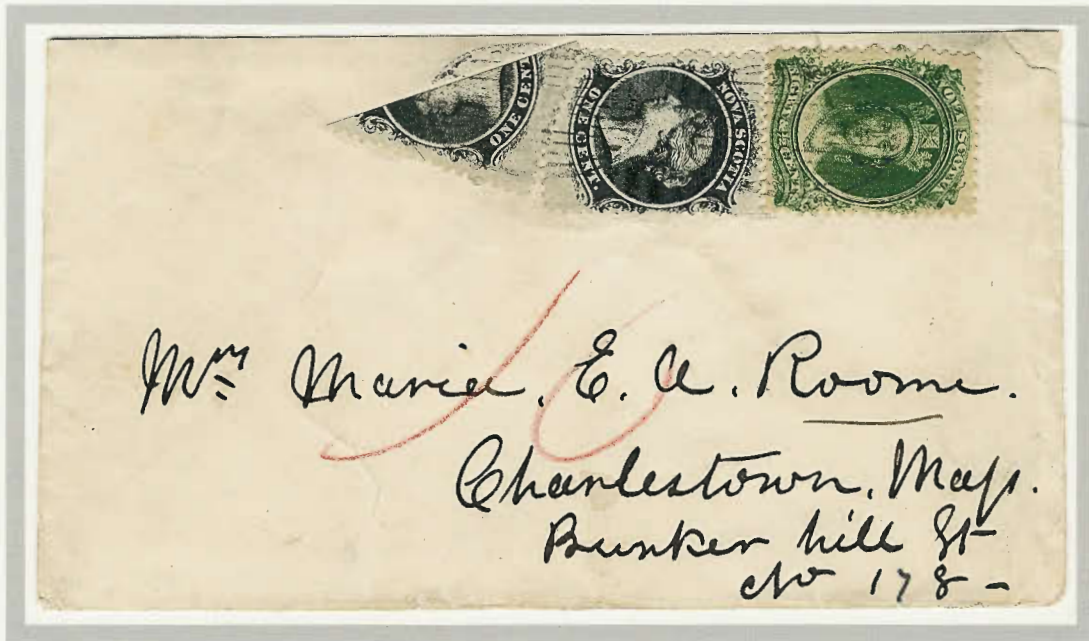 ONE CENT
ONE CENT.
NOVA SCOTIA
NOVA SCOTIA
10
Mrs Maria. E. A. Roome.
Charlestown, Mass.
Bunker hill St
No 178 -